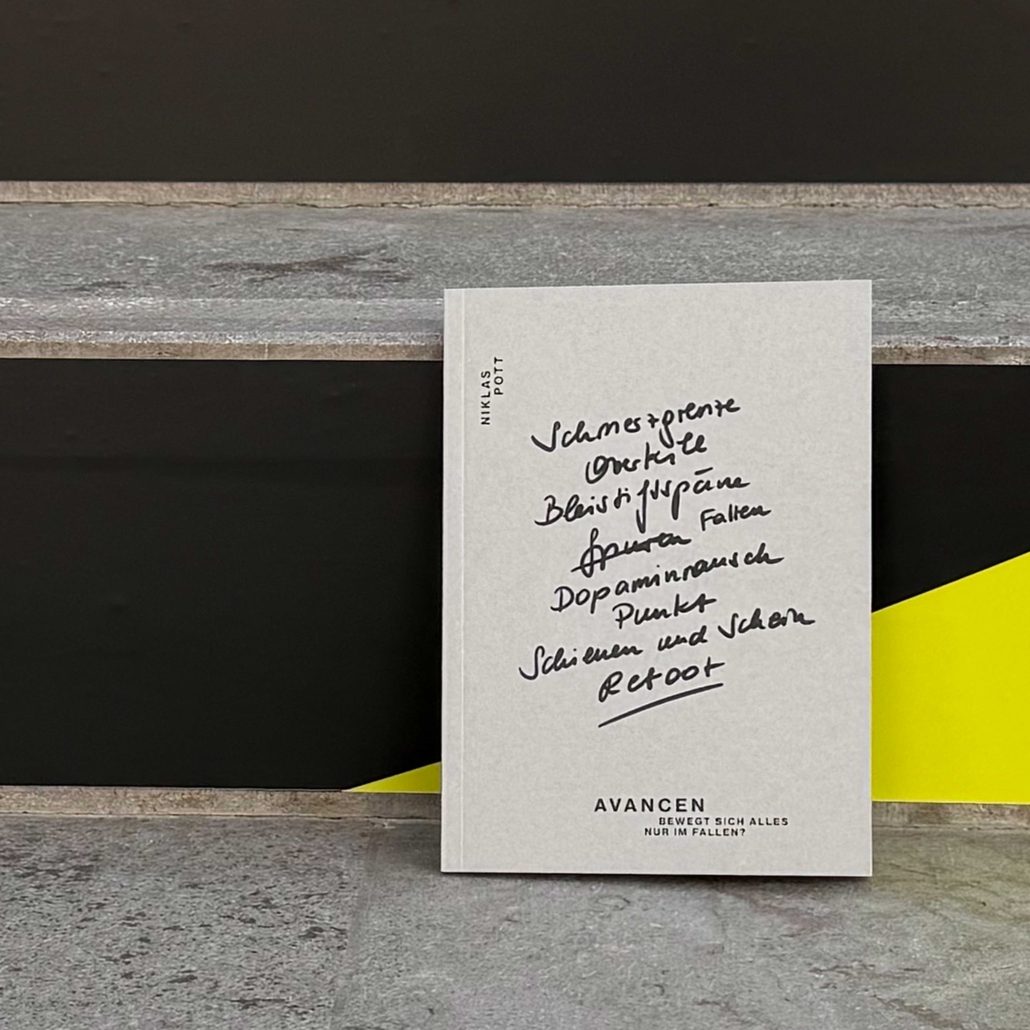 NIKLAS
POTT
Schmerzgrenze
Overkill
Bleistiftspäne
Spuren Fallen
Dopaminrausch
Punkt
Schienen und Schein
Reboot
AVANCEN
BEWEGT SICH ALLES
NUR IM FALLEN?